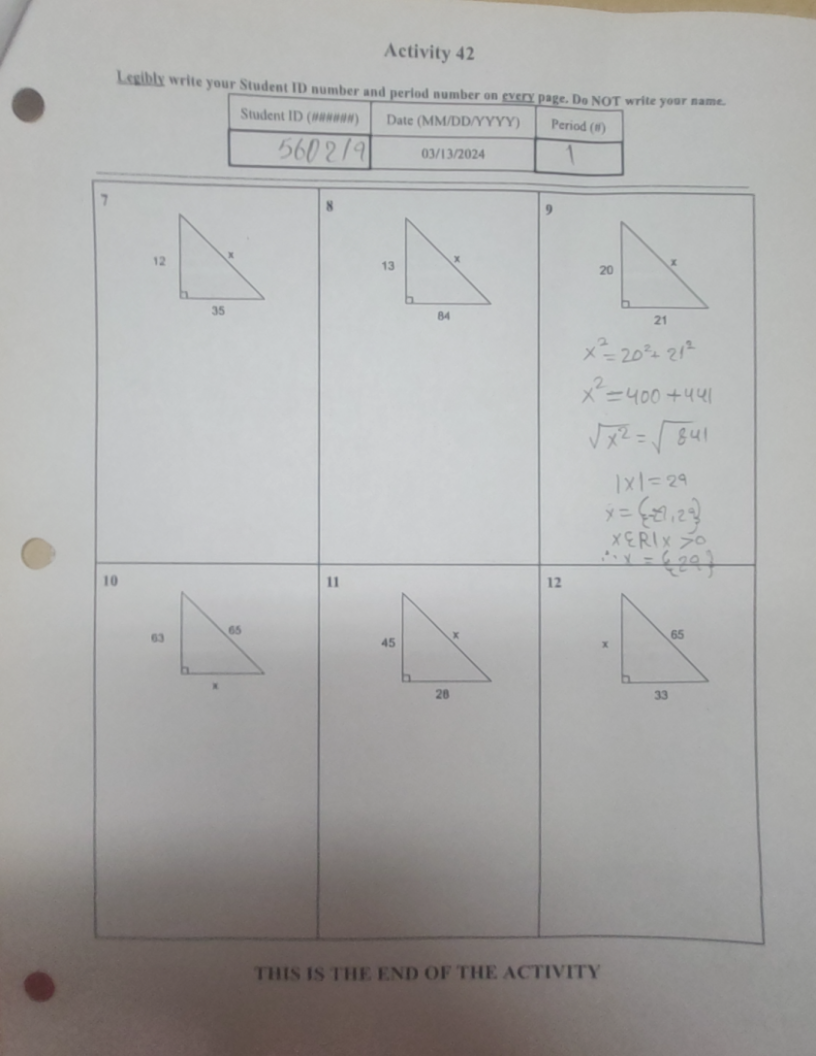 Activity 42
Legibly write your Student ID number and period number on every page. Do NOT write your name.
Student ID (######) Date (MM/DD/YYYY) Period (#)
560219 03/13/2024 1
7
12
x
35
8
13
x
84
9
20
x
21
x²=20²+ 21²
x²=400+441
√x² = √841
|x|=29
x = {-29,29}
xεR|x >0
∴ x = {29}
10
63
65
x
11
45
x
28
12
x
65
33
THIS IS THE END OF THE ACTIVITY